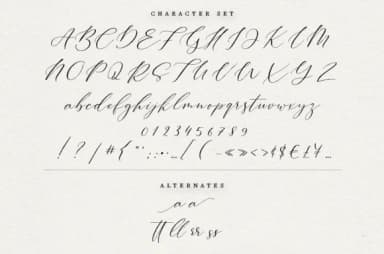 CHARACTER SET
ABCDEFGHIJKLM
NOPQRSTUVWXYZ
abcdefghijklmnopqrstuvwxyz
0123456789
!?|#{"":;...-_[(-«»<>¢$€£¥_
ALTERNATES
a a
tt ll rr ss